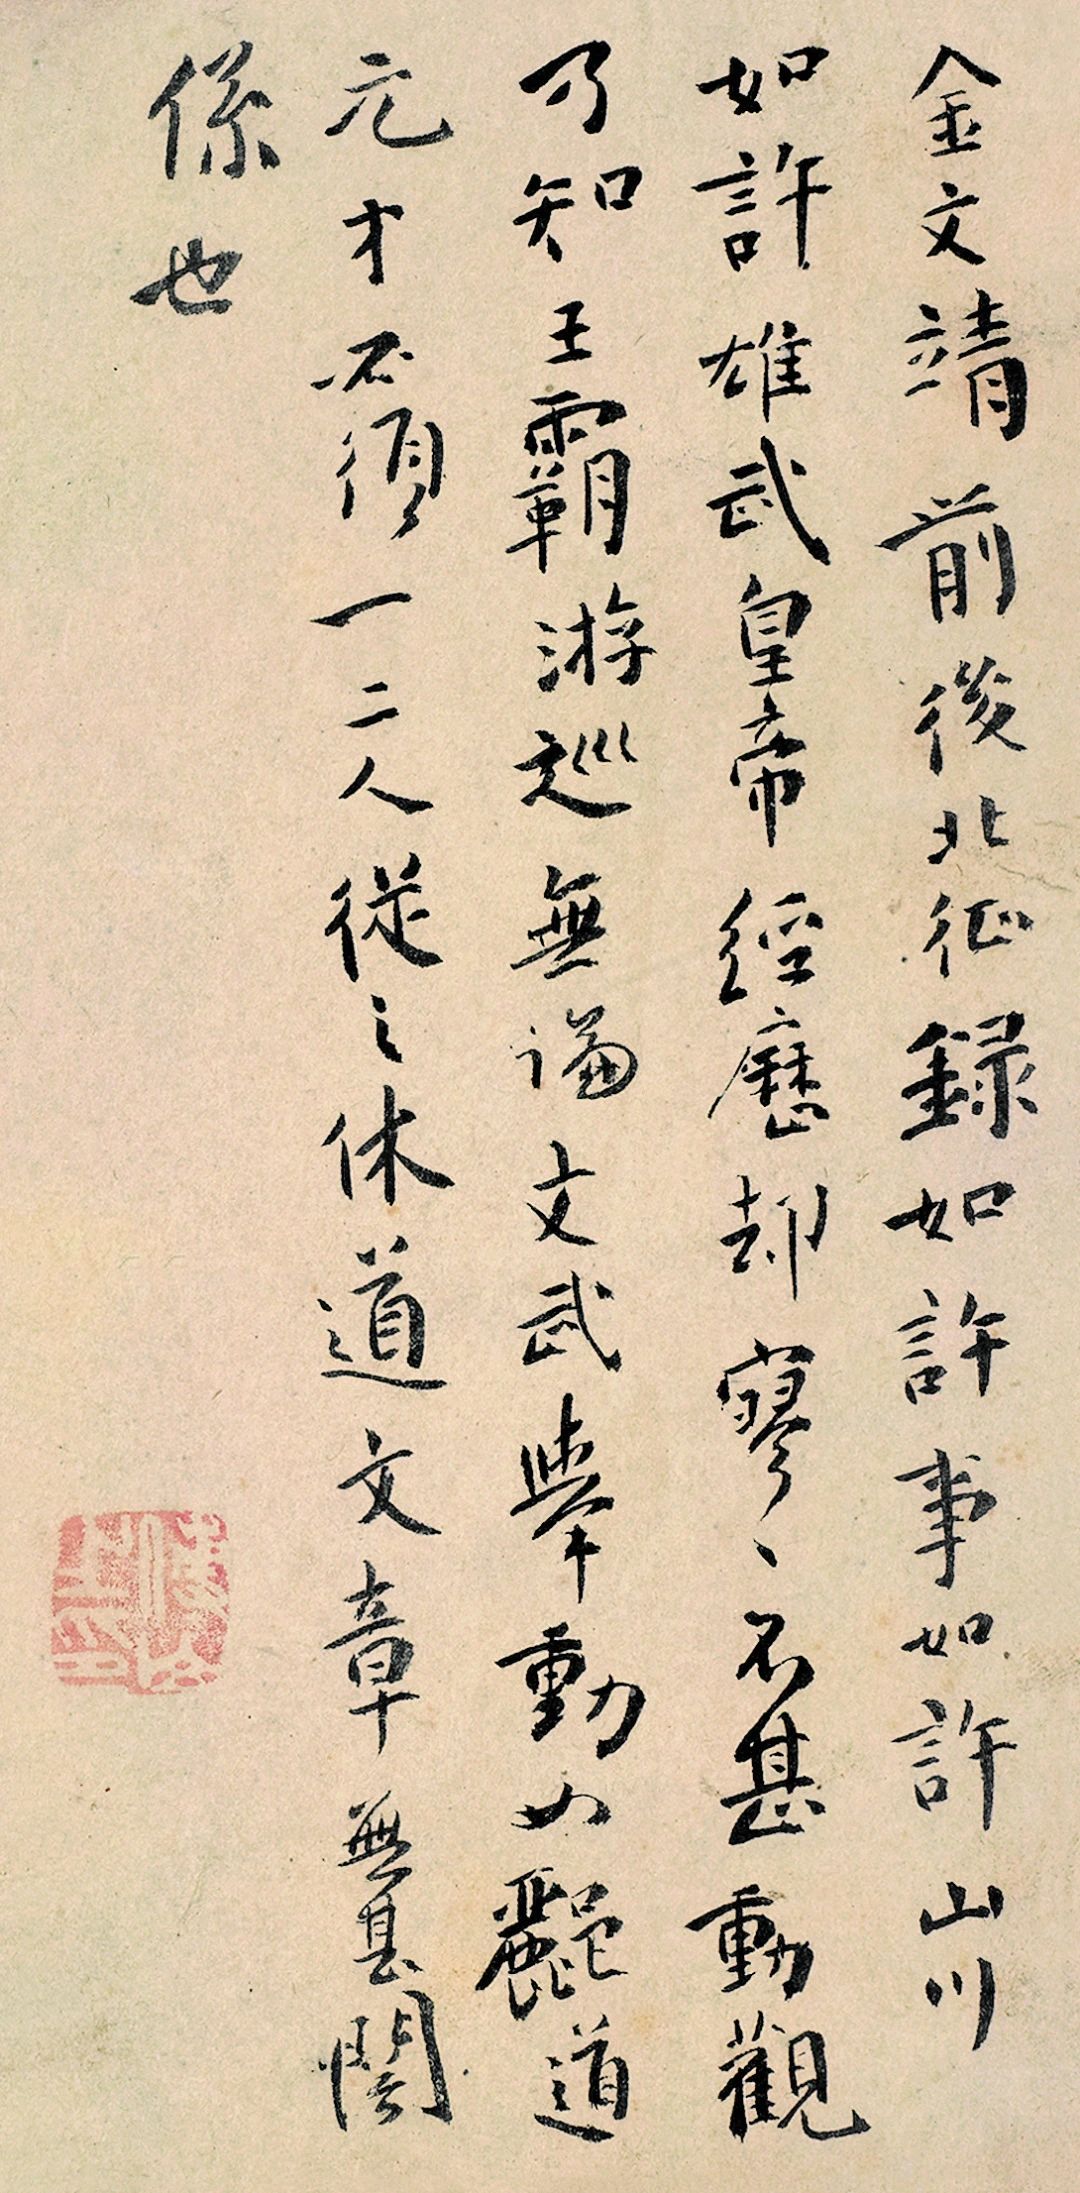 金文靖前後北征録如許事如許山川
如許雄武皇帝經歷却寥〻不甚動觀
乃知王霸游巡無論文武舉動如酈道
元才必須一二人從之休道文章無甚關
係也